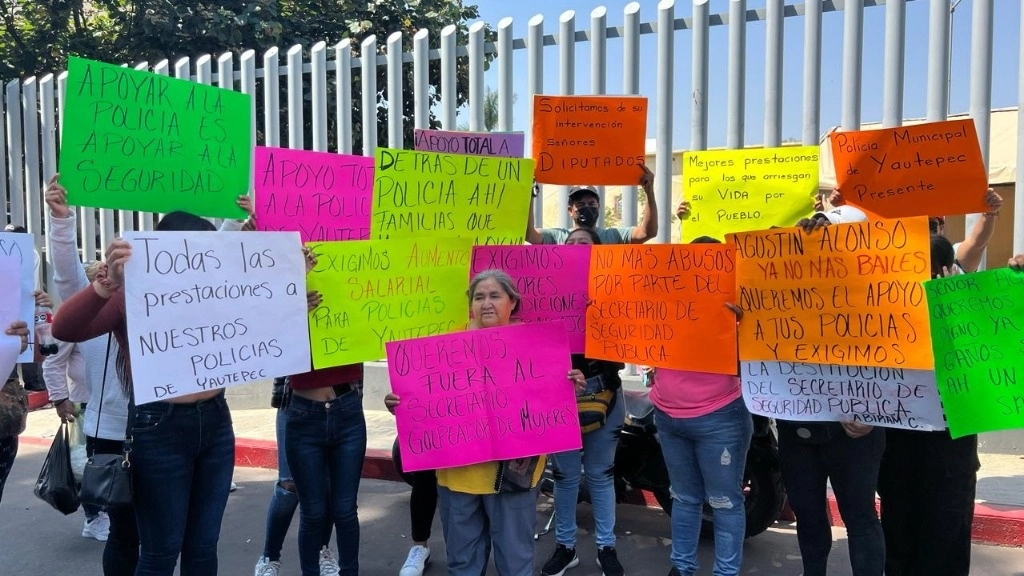 APOYAR A LA
POLICIA ES
APOYAR A LA
SEGURIDAD
APOYO TOTAL
A LA POLICIA
APOYO TOTAL A
DETRAS DE UN
POLICIA AHI
FAMILIAS QUE
Solicitamos de su
intervención
Señores
DIPUTADOS
Mejores prestaciones
para los que arriesgan
su VIDA por
el PUEBLO.
Policia Municipal
de Yautepec
Presente
Todas las
prestaciones a
NUESTROS
POLICIAS
DE YAUTEPEC
EXIGIMOS AUMENTO
SALARIAL
PARA POLICIAS
DE YAUTEPEC
EXIGIMOS
QUEREMOS
FUERA AL
SECRETARIO
GOLPEADOR DE MUJERES
NO MAS ABUSOS
POR PARTE DEL
SECRETARIO DE
SEGURIDAD
PUBLICA
AGUSTIN ALONSO
YA NO NAS BAILES
QUEREMOS EL APOYO
A TUS POLICIAS
Y EXIGIMOS
LA DESTITUCION
DEL SECRETARIO DE
SEGURIDAD PUBLICA
ABIRAM C.
QUEREMOS
YA
AH UN